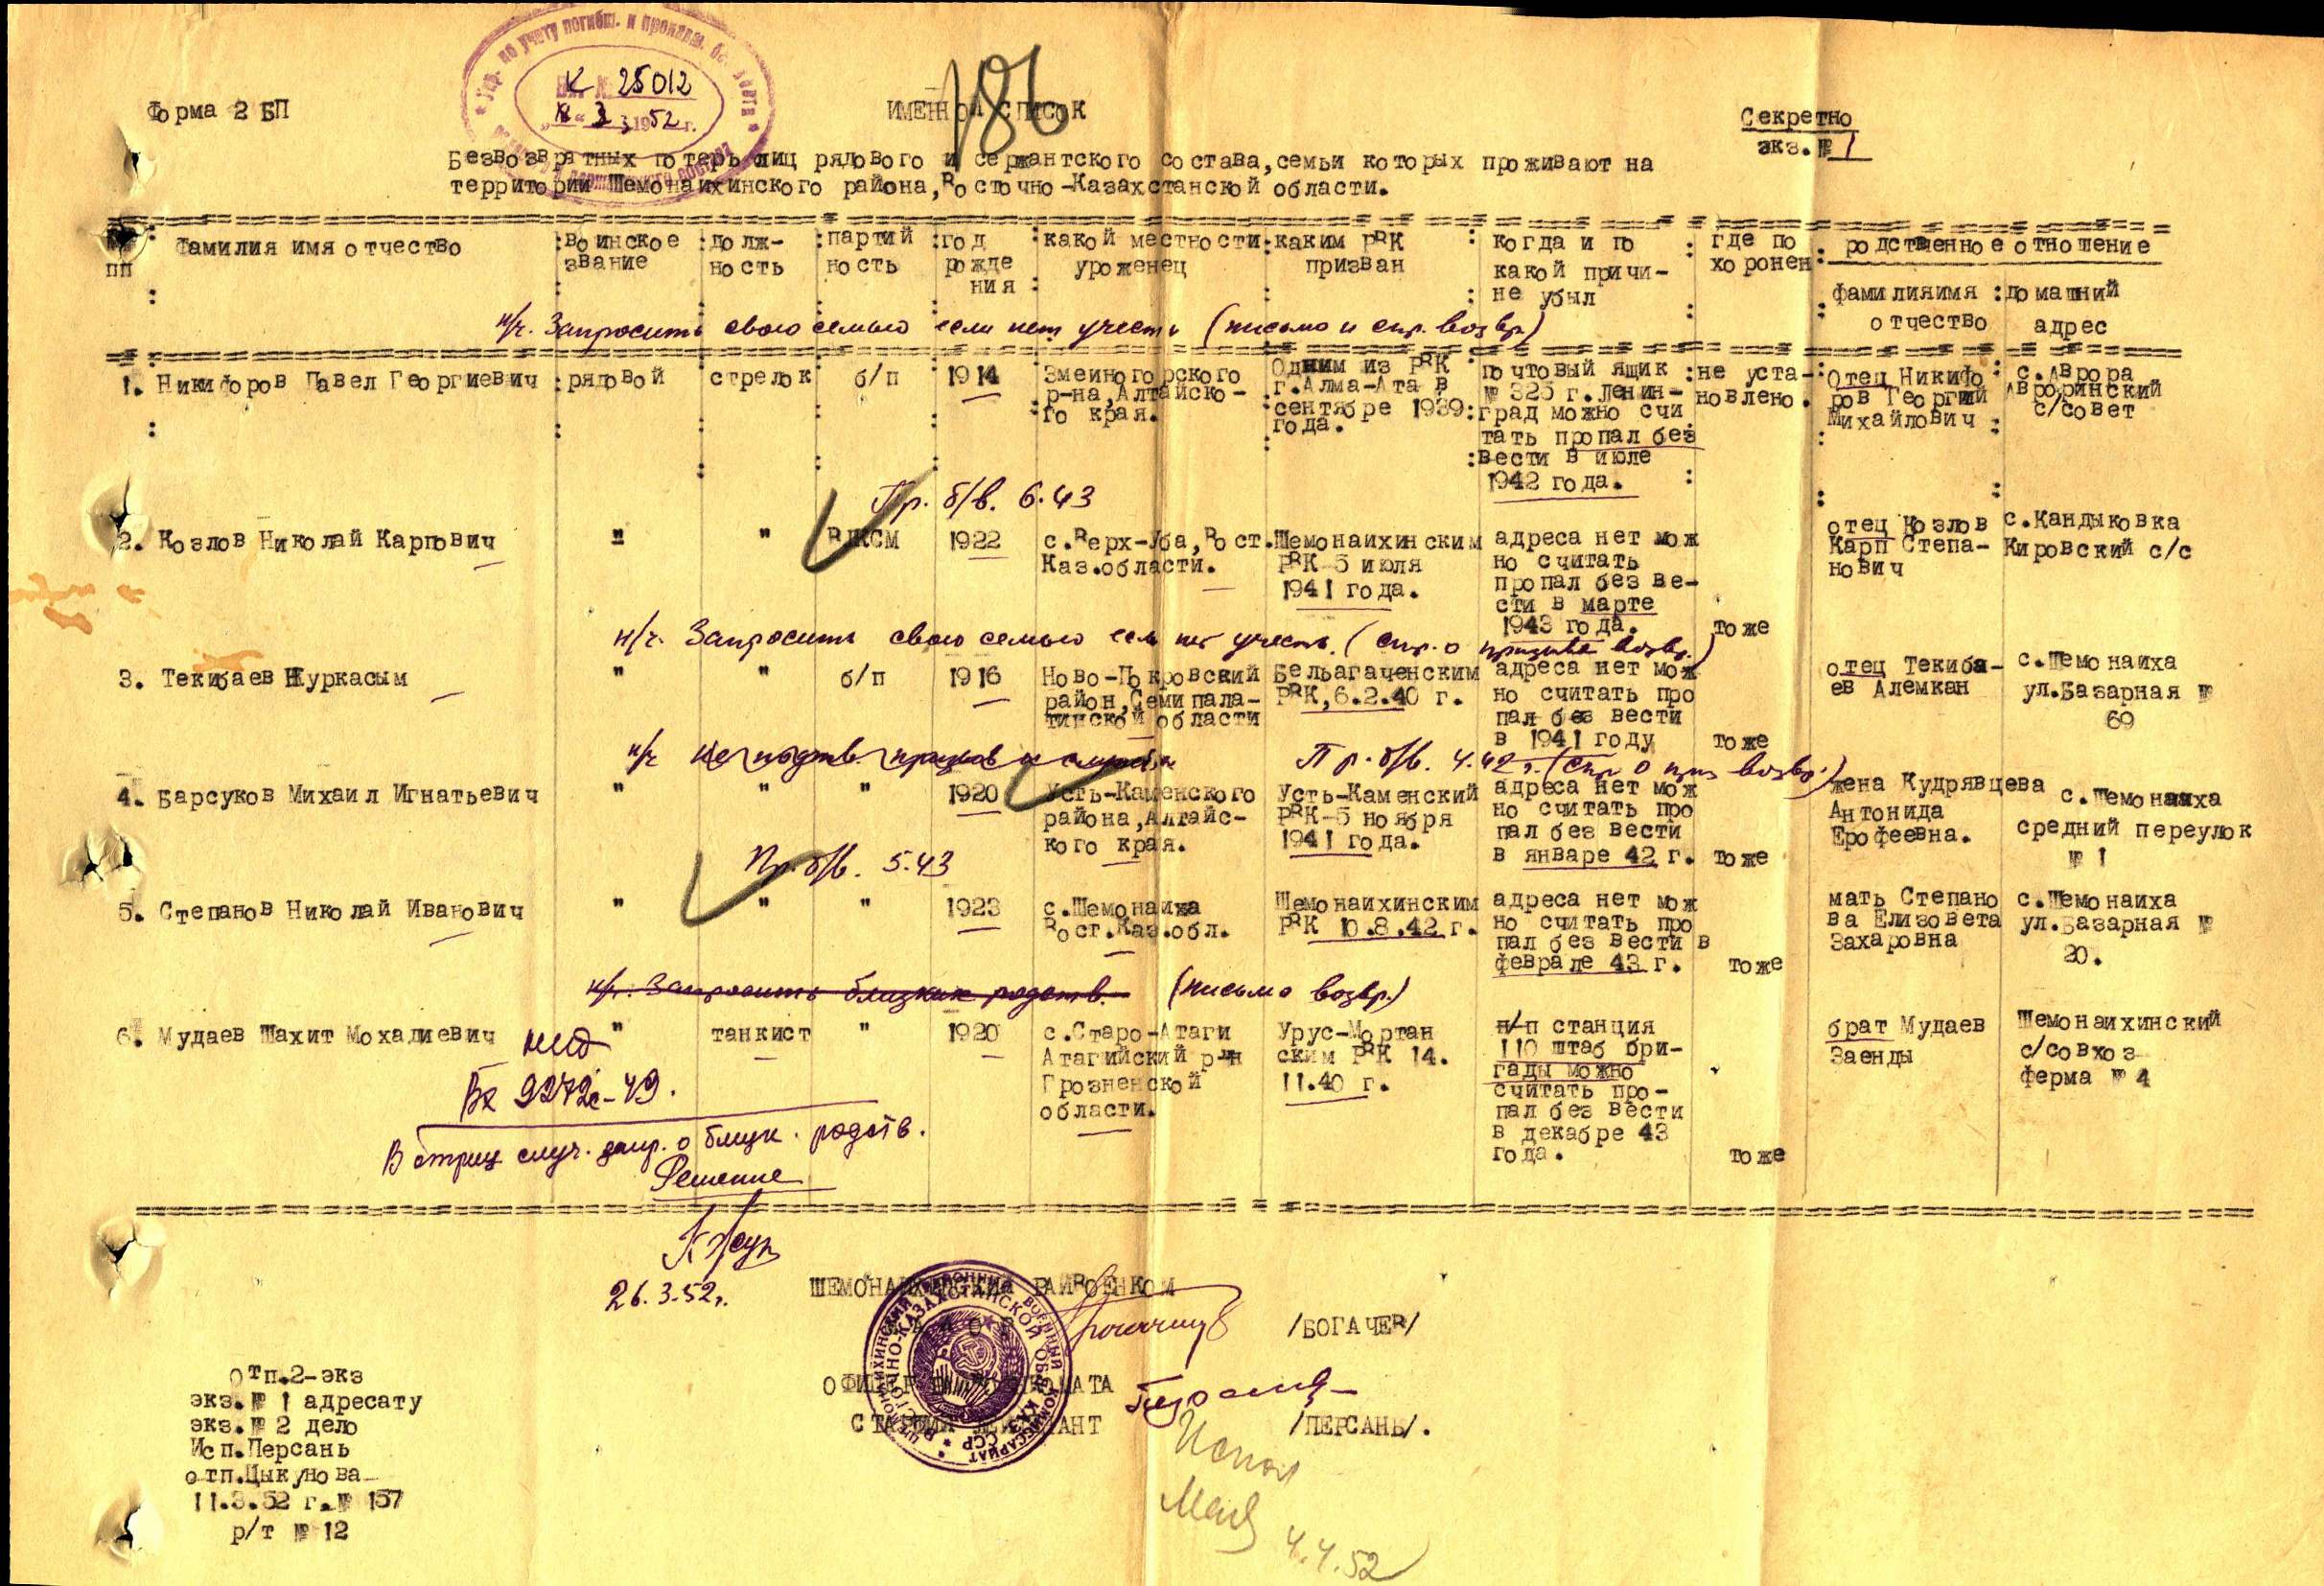 Форма 2 БП
К 25012
3 1952 г.
186
ИМЕННОЙ СПИСОК
Секретно
экз.№ 1
Безвозвратных потерь лиц рядового и сержантского состава,семьи которых проживают на
территории Шемонаихинского района,Восточно-Казахстанской области.
№ пп
Фамилия имя отчество
воинское звание
должность
партийность
год рождения
какой местности уроженец
каким РВК призван
когда и по какой причине убыл
где похоронен
родственное отношение
фамилияимя отчество
домашний адрес
н/ч. Запросить свою семью если нет учесть (письмо и спр. возвр.)
1. Никифоров Павел Георгиевич
рядовой
стрелок
б/п
1914
Змеиногорского
р-на,Алтайско-
го края.
Одним из РВК
г.Алма-Ата в
сентябре 1939
года.
почтовый ящик
№ 325 г.Ленин-
град можно счи
тать пропал без
вести в июле
1942 года.
не уста-
новлено.
Отец Никифо
ров Георгий
Михайлович
с.Аврора
Авроринский
с/совет
Пр. б/в. 6.43
2. Козлов Николай Карпович
"
"
ВЛКСМ
1922
с.Верх-Уба,Вост.
Каз.области.
Шемонаихинским
РВК 5 июля
1941 года.
адреса нет мож
но считать
пропал без ве-
сти в марте
1943 года.
тоже
отец Козлов
Карп Степа-
нович
с.Кандыковка
Кировский с/с
н/ч. Запросить свою семью если нет учесть. (спр. о призыве возвр.)
3. Текибаев Нуркасым
"
"
б/п
1916
Ново-Покровский
район,Семипала-
тинской области
Бельагаченским
РВК,6.2.40 г.
адреса нет мож
но считать про
пал без вести
в 1941 году
тоже
отец Текиба-
ев Алемкан
с.Шемонаиха
ул.Базарная №
69
н/ч
Пр. б/в. 4.42 г. (спр о приз возвр.)
4. Барсуков Михаил Игнатьевич
"
"
"
1920
Усть-Каменского
района,Алтайс-
кого края.
Усть-Каменский
РВК-5 ноября
1941 года.
адреса нет мож
но считать про
пал без вести
в январе 42 г.
тоже
жена Кудрявцева
Антонида
Ерофеевна.
с.Шемонаиха
средний переулок
№ 1
Пр. б/в. 5.43
5. Степанов Николай Иванович
"
"
"
1923
с.Шемонаиха
Вост.Каз.обл.
Шемонаихинским
РВК 10.8.42 г.
адреса нет мож
но считать про
пал без вести в
феврале 43 г.
тоже
мать Степано
ва Елизовета
Захаровна
с.Шемонаиха
ул.Базарная №
20.
н/ч. Запросить близких родств. (письмо возвр.)
6. Мудаев Шахит Мохадиевич
"
танкист
"
1920
с.Старо-Атаги
Атагийский р-н
Грозненской
области.
Урус-Мортан
ским РВК 14.
11.40 г.
п/п станция
110 штаб бри-
гады можно
считать про-
пал без вести
в декабре 43
года.
тоже
брат Мудаев
Заенды
Шемонаихинский
с/совхоз
ферма № 4
Вх 9272с-49.
В отриц случ. запр. о близк. родств.
Решение
26.3.52г.
ШЕМОНАИХИНСКИЙ РАЙВОЕНКОМ
/БОГАЧЕВ/
ОФИЦЕР
СТАРШИЙ ЛЕЙТЕНАНТ
/ПЕРСАНЬ/.
Испол
4.4.52
отп.2-экз
экз.№ 1 адресату
экз.№ 2 дело
Исп.Персань
отп.Цыкунова
11.3.52 г.№ 157
р/т № 12